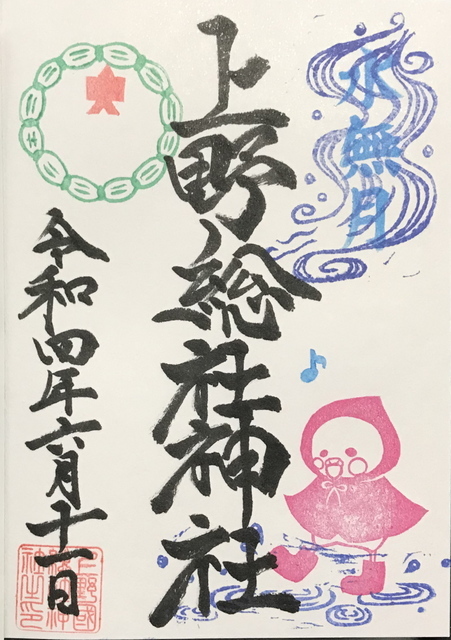 水無月
上野総社神社
令和四年六月十一日
上野國
総社神
社之印